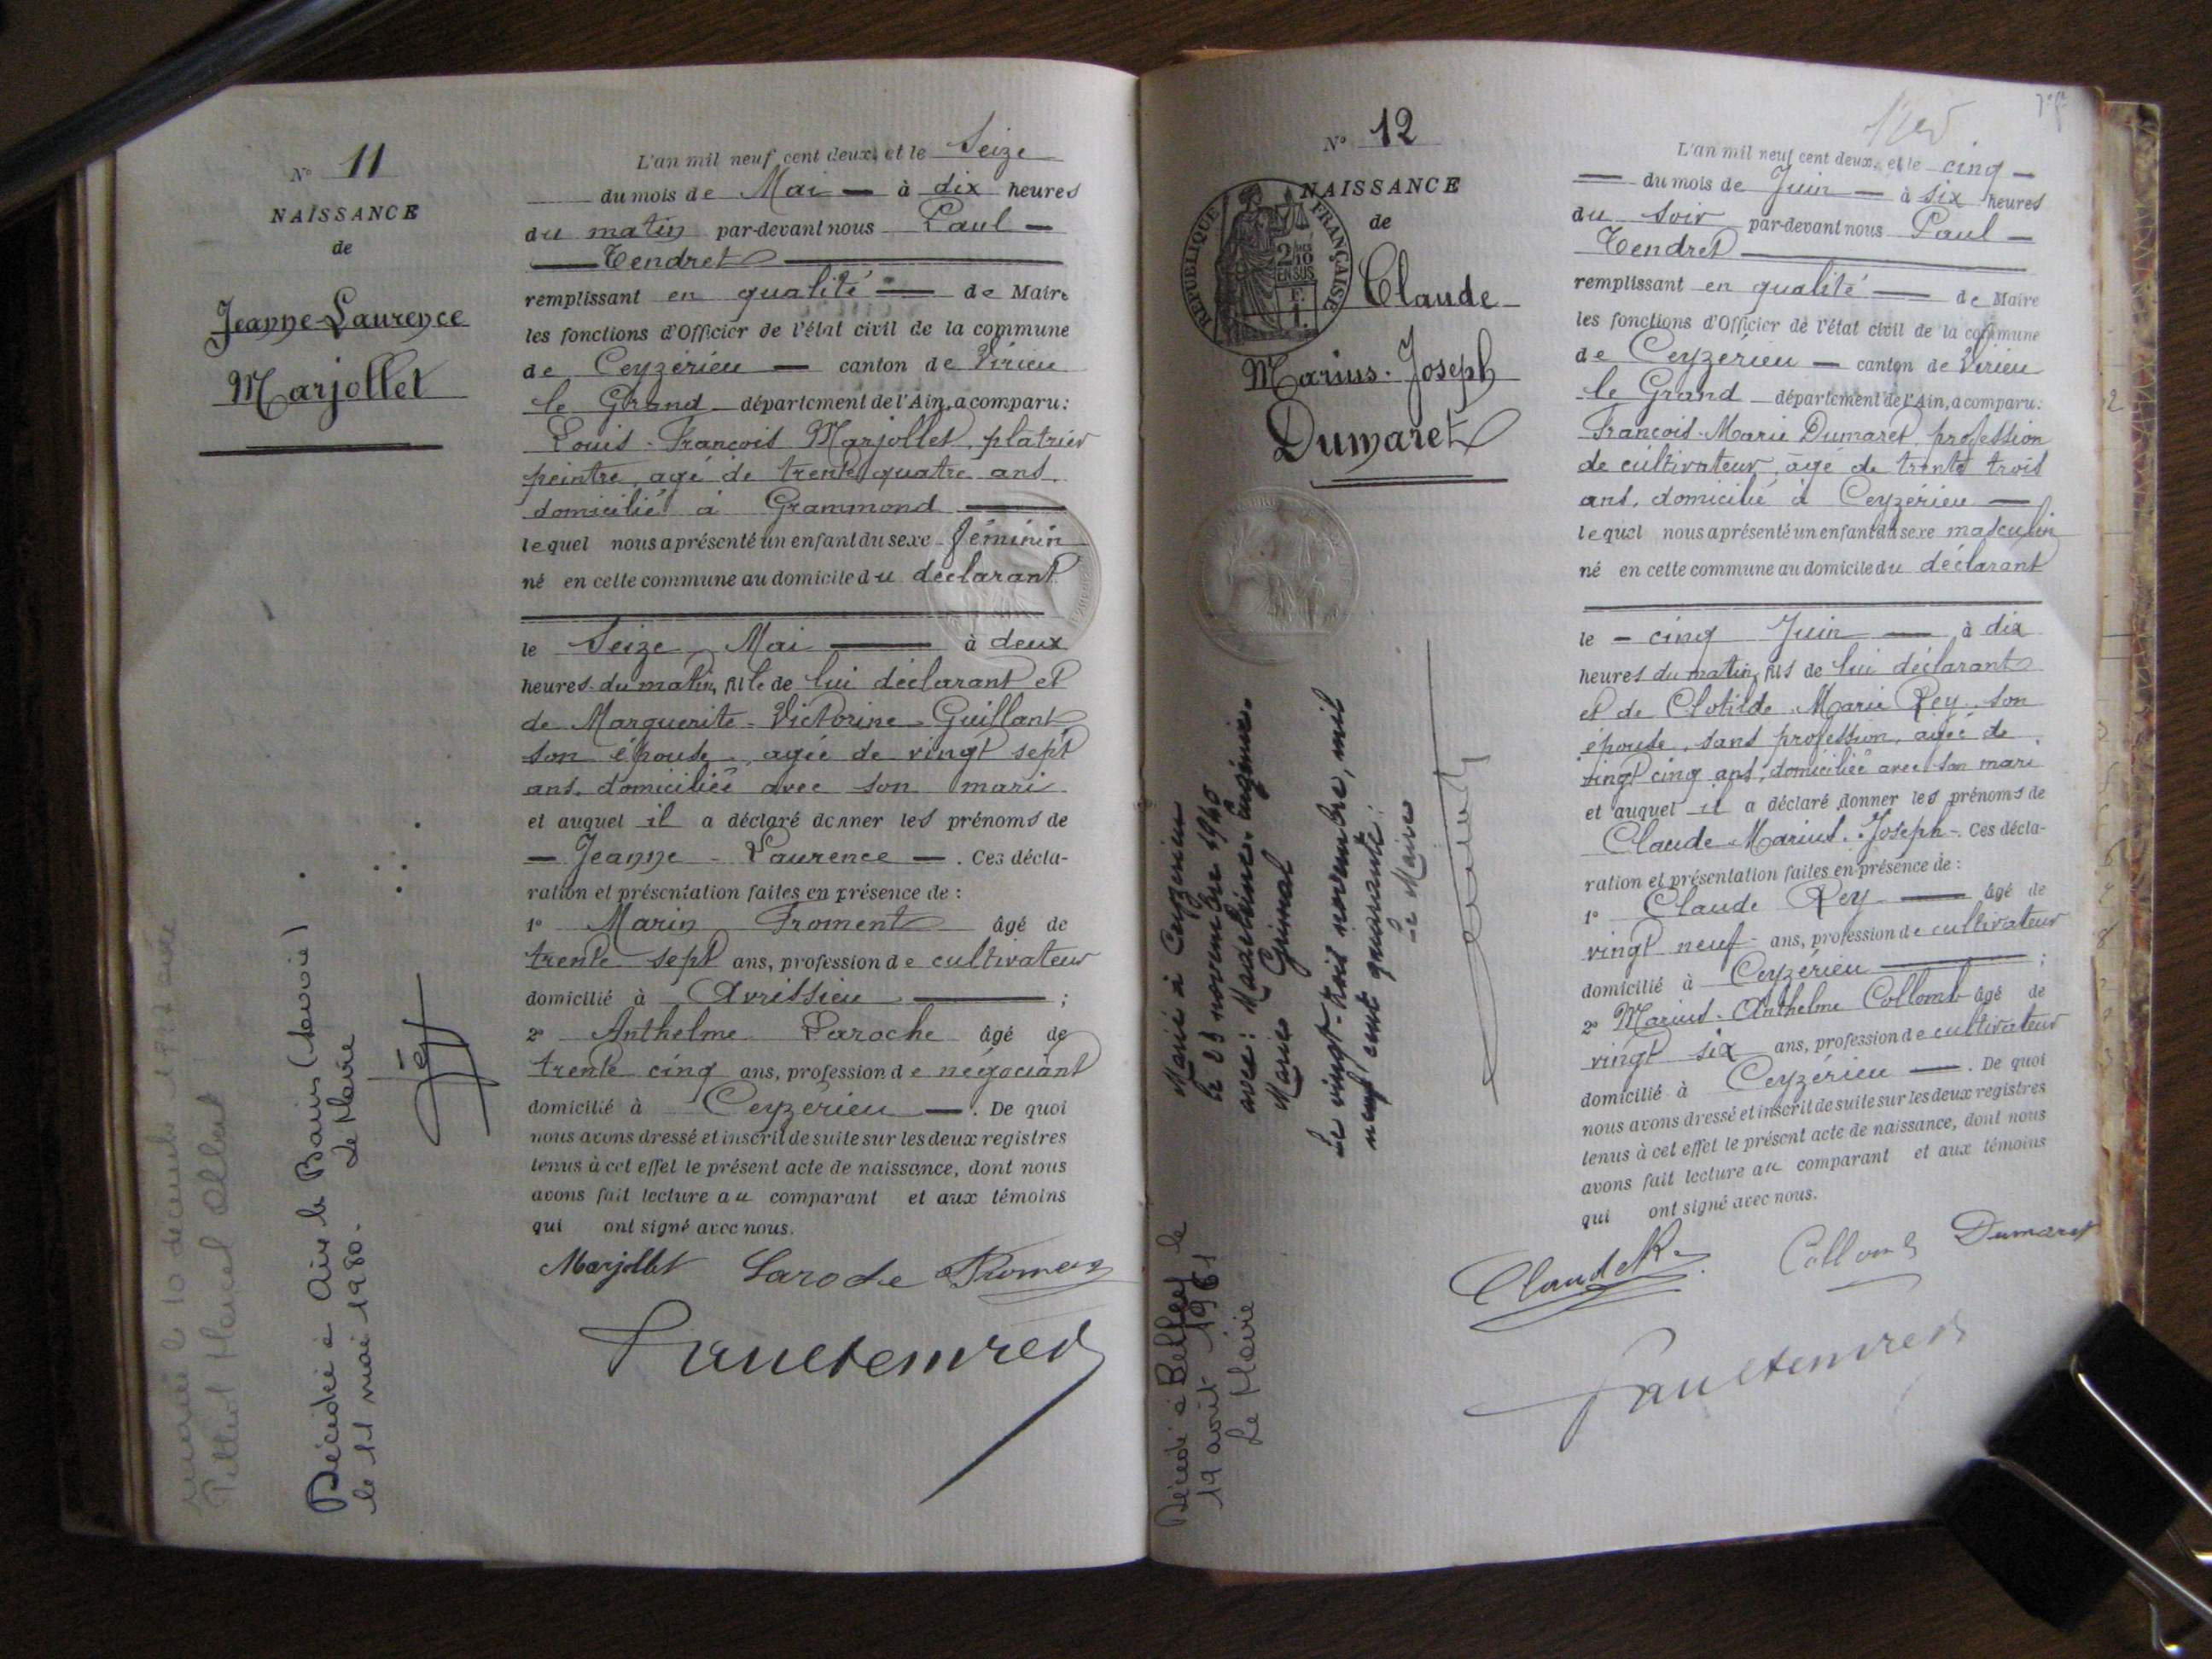 N° 11
NAISSANCE
de
Jeanne-Laurence
Marjollet
L'an mil neuf cent deux, et le Seize
du mois de Mai à dix heures
du matin par-devant nous Paul
Tendret
remplissant en qualité de Maire
les fonctions d'Officier de l'état civil de la commune
de Ceyzérieu canton de Virieu
le Grand département de l'Ain, a comparu:
Louis-François Marjollet, plâtrier
peintre, agé de trente quatre ans,
domicilié à Grammond
lequel nous a présenté un enfant du sexe féminin
né en cette commune au domicile du déclarant
le Seize Mai à deux
heures du matin, fille de lui déclarant et
de Marguerite-Victorine Guillant
son épouse, agée de vingt sept
ans, domiciliée avec son mari
et auquel il a déclaré donner les prénoms de
Jeanne-Laurence. Ces décla-
ration et présentation faites en présence de :
1° Marin Froment âgé de
trente sept ans, profession de cultivateur
domicilié à Avrissieu ;
2° Anthelme Laroche âgé de
trente cinq ans, profession de négociant
domicilié à Ceyzérieu. De quoi
nous avons dressé et inscrit de suite sur les deux registres
tenus à cet effet le présent acte de naissance, dont nous
avons fait lecture au comparant et aux témoins
qui ont signé avec nous.
Marjollet Laroche Froment
Paul Tendret
mariée le 10 décembre
Marcel
Décédée à Aix les Bains (Savoie)
le 11 mai 1980. Le Maire
N° 12
NAISSANCE
de
Claude-
Marius-Joseph
Dumaret
REPUBLIQUE FRANÇAISE
2/10 EN SUS
L'an mil neuf cent deux, et le cinq
du mois de Juin à six heures
du soir par-devant nous Paul
Tendret
remplissant en qualité de Maire
les fonctions d'Officier de l'état civil de la commune
de Ceyzérieu canton de Virieu
le Grand département de l'Ain, a comparu:
François-Marie Dumaret, profession
de cultivateur, âgé de trente trois
ans, domicilié à Ceyzérieu
lequel nous a présenté un enfant du sexe masculin
né en cette commune au domicile du déclarant
le cinq Juin à dix
heures du matin, fils de lui déclarant
et de Clotilde Marie Rey son
épouse, sans profession, agée de
vingt cinq ans, domiciliée avec son mari
et auquel il a déclaré donner les prénoms de
Claude-Marius-Joseph. Ces décla-
ration et présentation faites en présence de :
1° Claude Rey âgé de
vingt neuf ans, profession de cultivateur
domicilié à Ceyzérieu ;
2° Marius-Anthelme Collomb âgé de
vingt six ans, profession de cultivateur
domicilié à Ceyzérieu. De quoi
nous avons dressé et inscrit de suite sur les deux registres
tenus à cet effet le présent acte de naissance, dont nous
avons fait lecture au comparant et aux témoins
qui ont signé avec nous.
Claude R. Collomb Dumaret
Paul Tendret
Marié à Ceyzérieu
le 23 novembre 1940
avec: Madeleine-Eugénie-
Marie Grimal
Le vingt-trois novembre, mil
neuf cent quarante.
Le Maire
Décédé à Belley le
19 avril 1961
Le Maire